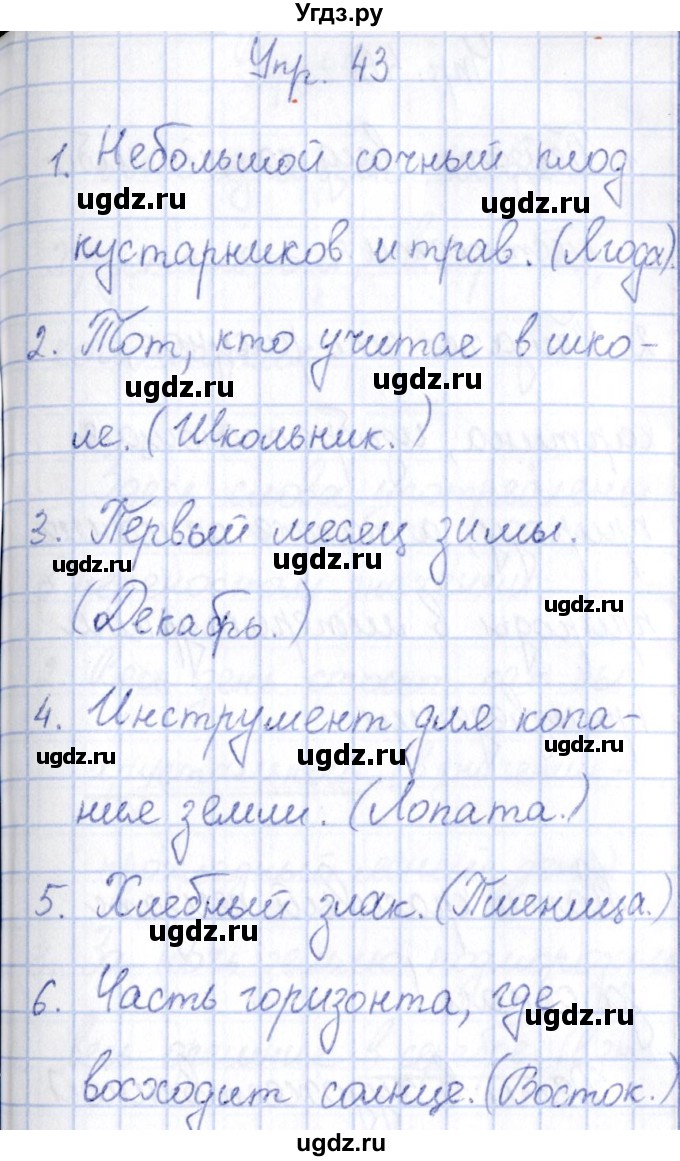 Угдз.ру
Упр. 43
1. Небольшой сочный плод
ugdz.ru ugdz.ru
кустарников и трав. (Ягода).
2. Тот, кто учится в шко-
ugdz.ru ugdz.ru
ле. (Школьник.)
3. Первый месяц зимы.
ugdz.ru ugdz.ru
ugdz.ru
(Декабрь.)
4. Инструмент для копа-
ugdz.ru ugdz.ru ugdz.ru
ния земли. (Лопата.)
5. Хлебный злак. (Пшеница.)
ugdz.ru
6. Часть горизонта, где
ugdz.ru
восходит солнце. (Восток.)
ugdz.ru